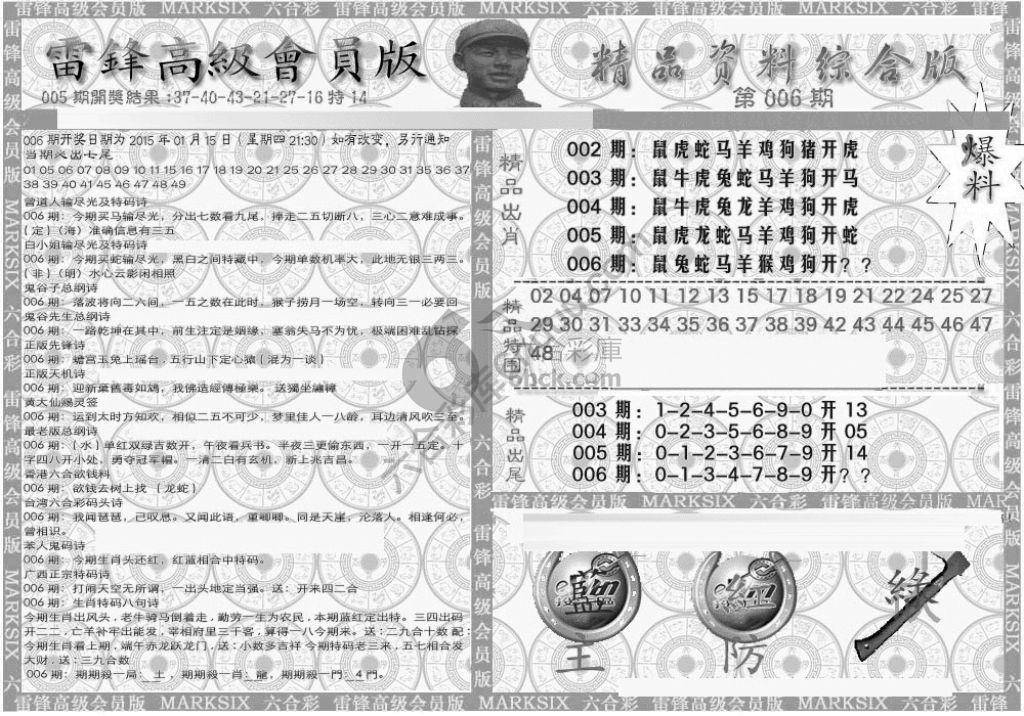 雷锋高级会员版 MARKSIX 六合彩 雷锋高级会员版 MARKSIX 六合彩 雷锋高级会员版 MARKSIX 六合彩 雷锋
雷鋒高級會員版
005期開獎結果:37-40-43-21-27-16特14
精品资料综合版
第006期
爆料
006期开奖日期为2015年01月15日（星期四21:30）如有改变，另行通知
当期必出七尾
01 05 06 07 08 09 10 11 15 16 17 18 19 20 21 25 26 27 28 29 30 31 35 36 37
38 39 40 41 45 46 47 48 49
曾道人输尽光及特码诗
006期：今期买马输尽光，分出七数看九尾，捧走二五切断八，三心二意难成事。
{定}（海）准确信息有三五
白小姐输尽光及特码诗
006期：今期买蛇输尽光，黑白之间特藏中，今期单数机率大，此地无银三两三。
{非}（明）水心云影闲相照
鬼谷子总纲诗
006期：落波将向二六间，一五之数在此时，猴子捞月一场空，转向三一必要回
鬼谷先生总纲诗
006期：一路乾坤在其中，前生注定是姻缘，塞翁失马不为忧，极端困难乱钻探
正版先锋诗
006期：蟾宫玉兔上瑶台，五行山下定心猿{混为一谈}
正版天机诗
006期：迎新棄舊毒如鴆，我佛造經傳極樂。 送獨坐
黄大仙赐灵签
006期：运到太时方知欢，相似二五不可少，梦里佳人一八龄，耳边清风吹三至。
最老版总纲诗
006期：{水}单红双绿吉数开，午夜看兵书。半夜三更偷东西，一开一五定。十
字四八开小处，勇夺冠军帽。一清二白有玄机，新上兆吉昌。
香港六合欲钱料
006期：欲钱去树上找 {龙蛇}
台湾六合彩码头诗
006期：我闻琵琶，已叹息。又闻此语，重唧唧。同是天崖，沦落人。相逢何必，
曾相识。
苯人鬼码诗
006期：今期生肖头还红，红蓝相合中特码。
广西正宗特码诗
006期：打闹天空无所谓，一出头地定当强。送：开来四二合
006期：生肖特码八句诗
今期生肖出风头，老牛骑马倒着走，勤劳一生为农民，本期蓝红定出特。三四出码
开二二，亡羊补牢出能发，宰相府里三千客，算得一八今期来。送：二九合十数 配：
今期生肖看上期，端午赤龙跃龙门，送：小数多吉祥 今期特码老三来，五七相合发
大财．送：三九合数
006期：期期殺一局：土，期期殺一肖：龍，期期殺一門：4門。
精品出肖
002期：鼠虎蛇马羊鸡狗猪开虎
003期：鼠牛虎兔蛇马羊狗开马
004期：鼠牛虎兔龙羊鸡狗开虎
005期：鼠虎龙蛇马羊鸡狗开蛇
006期：鼠兔蛇马羊猴鸡狗开？？
精品特围
02 04 07 10 11 12 13 15 16 17 18 19 21 22 24 25 27
29 30 31 33 34 35 36 37 38 39 42 43 44 45 46 47
48
彩庫
6hck.com
精品出尾
003期：1-2-4-5-6-9-0开13
004期：0-2-3-5-6-8-9开05
005期：0-1-2-3-6-7-9开14
006期：0-1-3-4-7-8-9开？？
雷锋高级会员版 MARKSIX 六合彩 雷锋高级会员版 MARKSIX
藍 紅 綠
主 防
雷锋高级会员版 MARKSIX 六合彩 雷锋高级会员版 MARKSIX 六合彩 雷锋高级会员版 MARKSIX 六合彩 雷锋